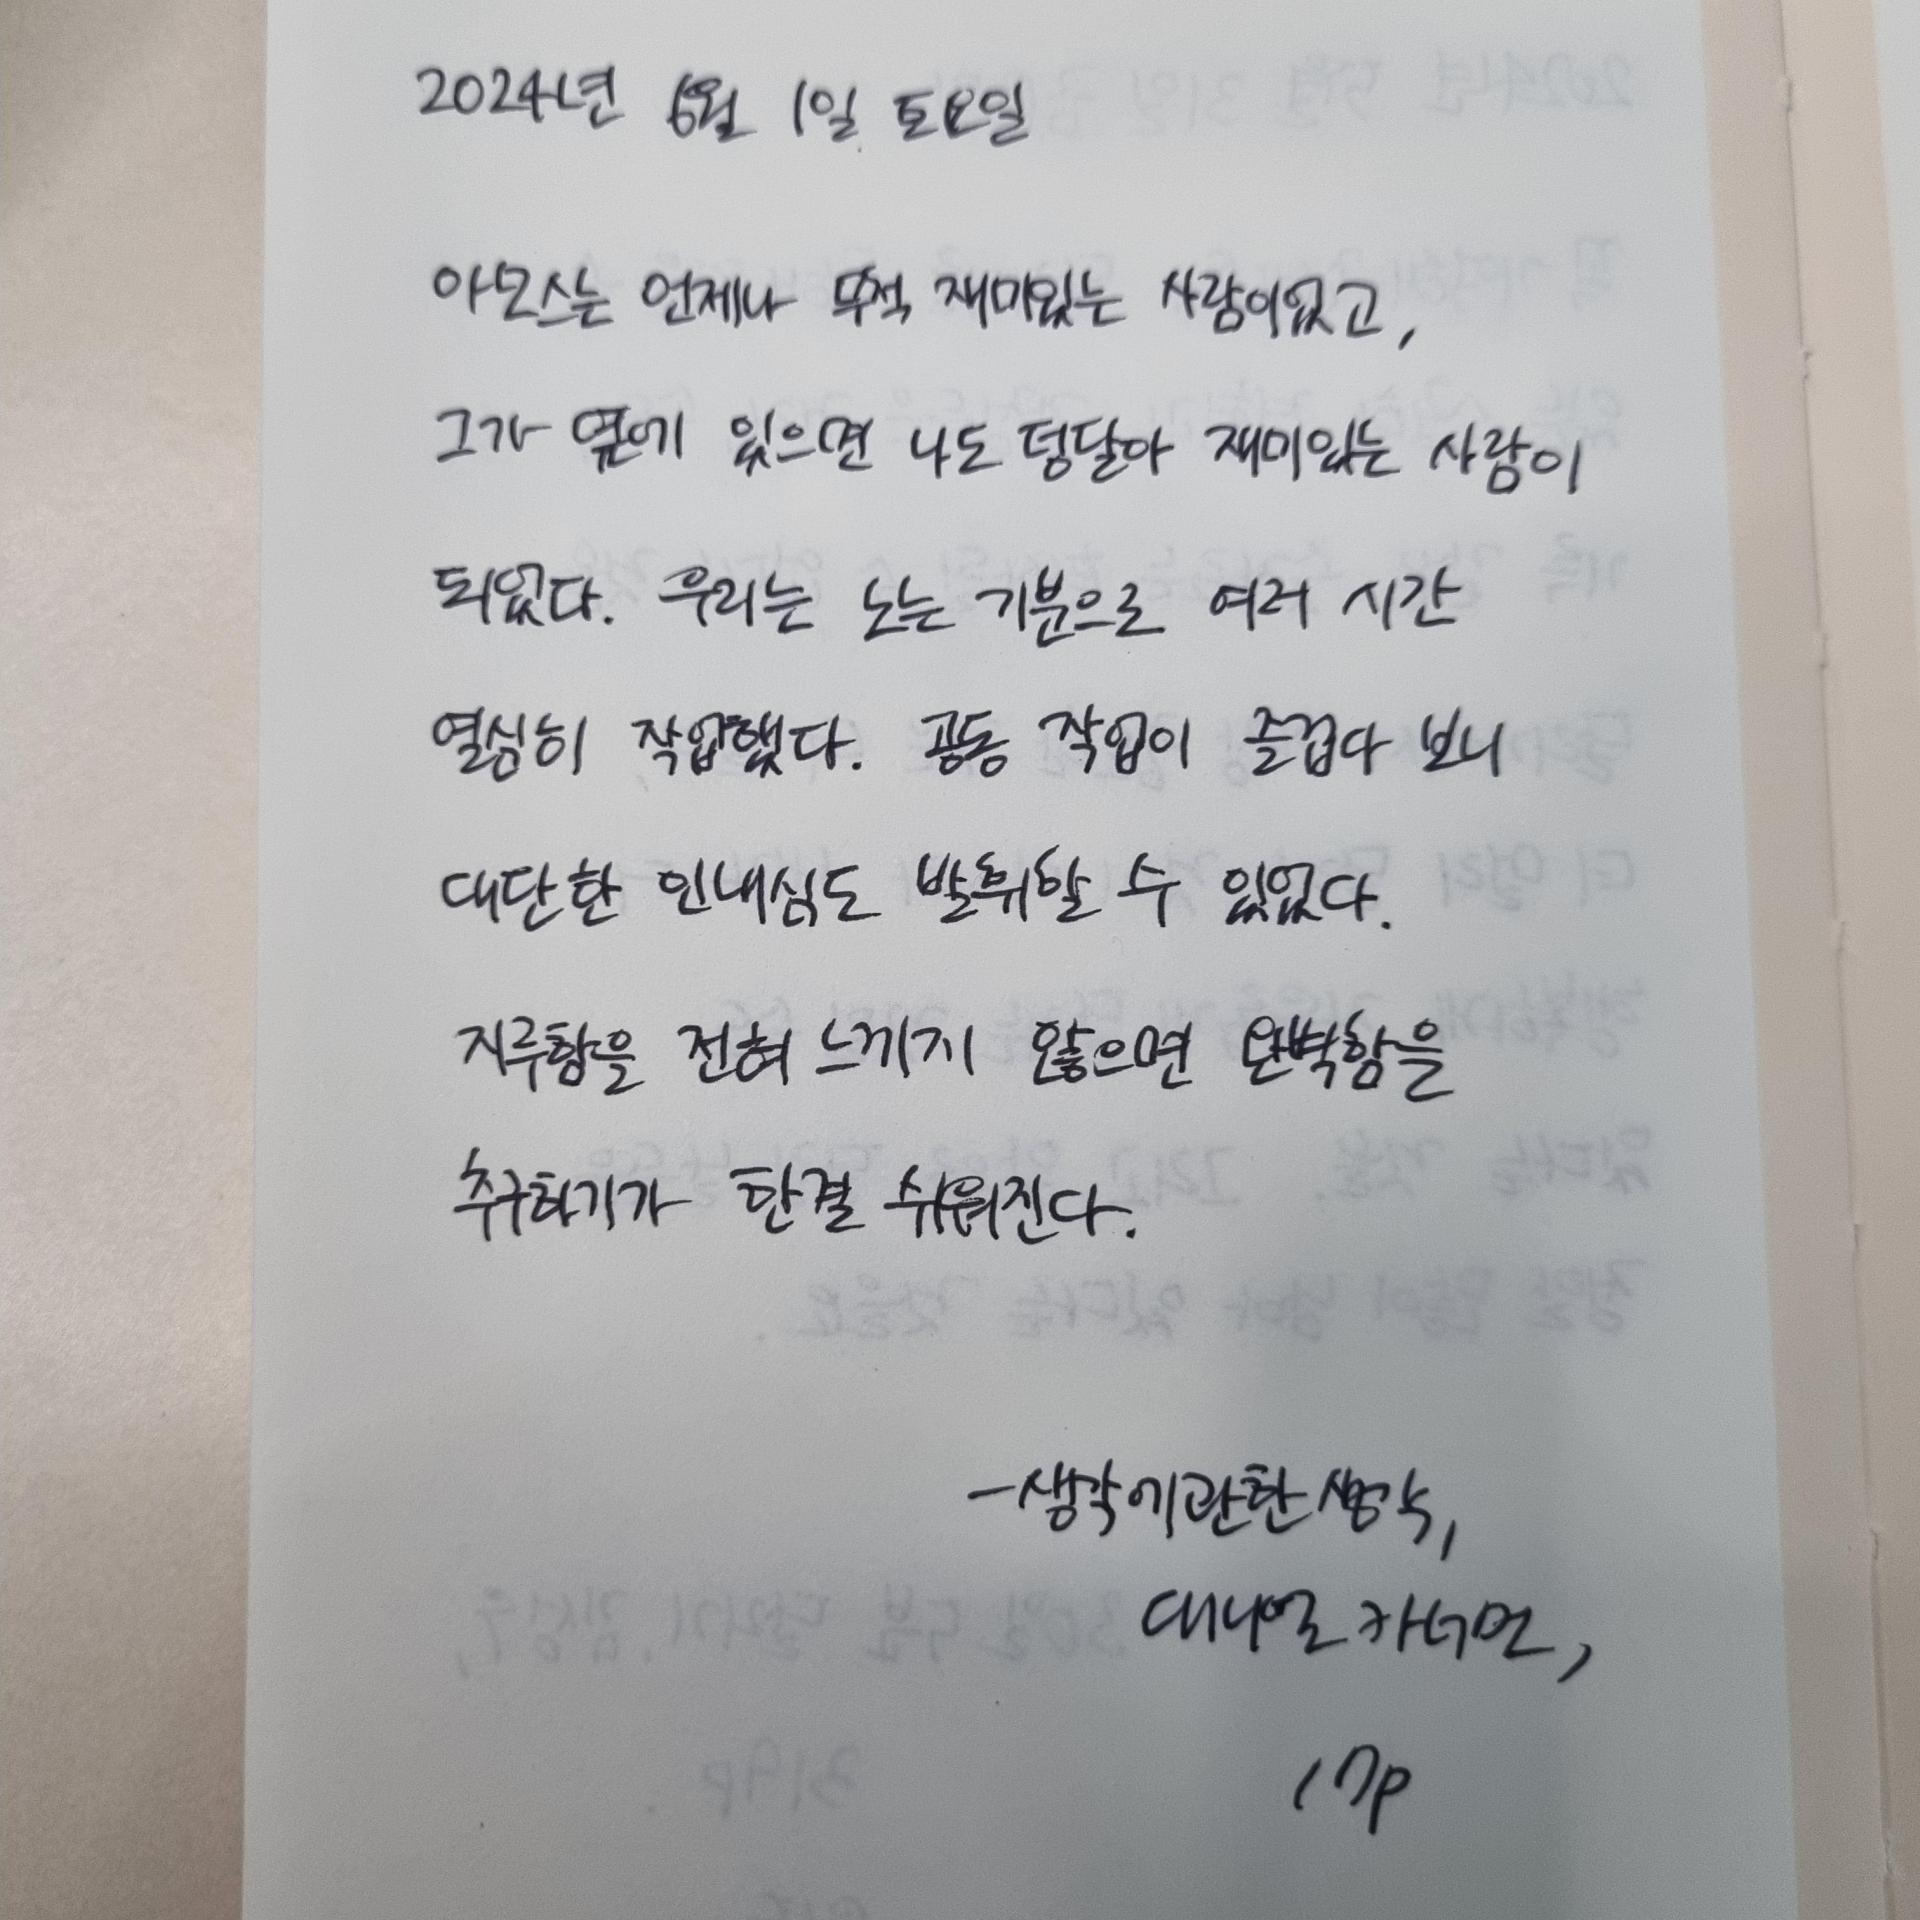 2024년 6월 1일 토요일
아모스는 언제나 무척 재미있는 사람이었고,
그가 옆에 있으면 나도 덩달아 재미있는 사람이
되었다. 우리는 노는 기분으로 여러 시간
열심히 작업했다. 공동 작업이 즐겁다 보니
대단한 인내심도 발휘할 수 있었다.
지루함을 전혀 느끼지 않으면 완벽함을
추구하기가 한결 쉬워진다.
-생각에관한생각,
대니얼 카너먼,
17p